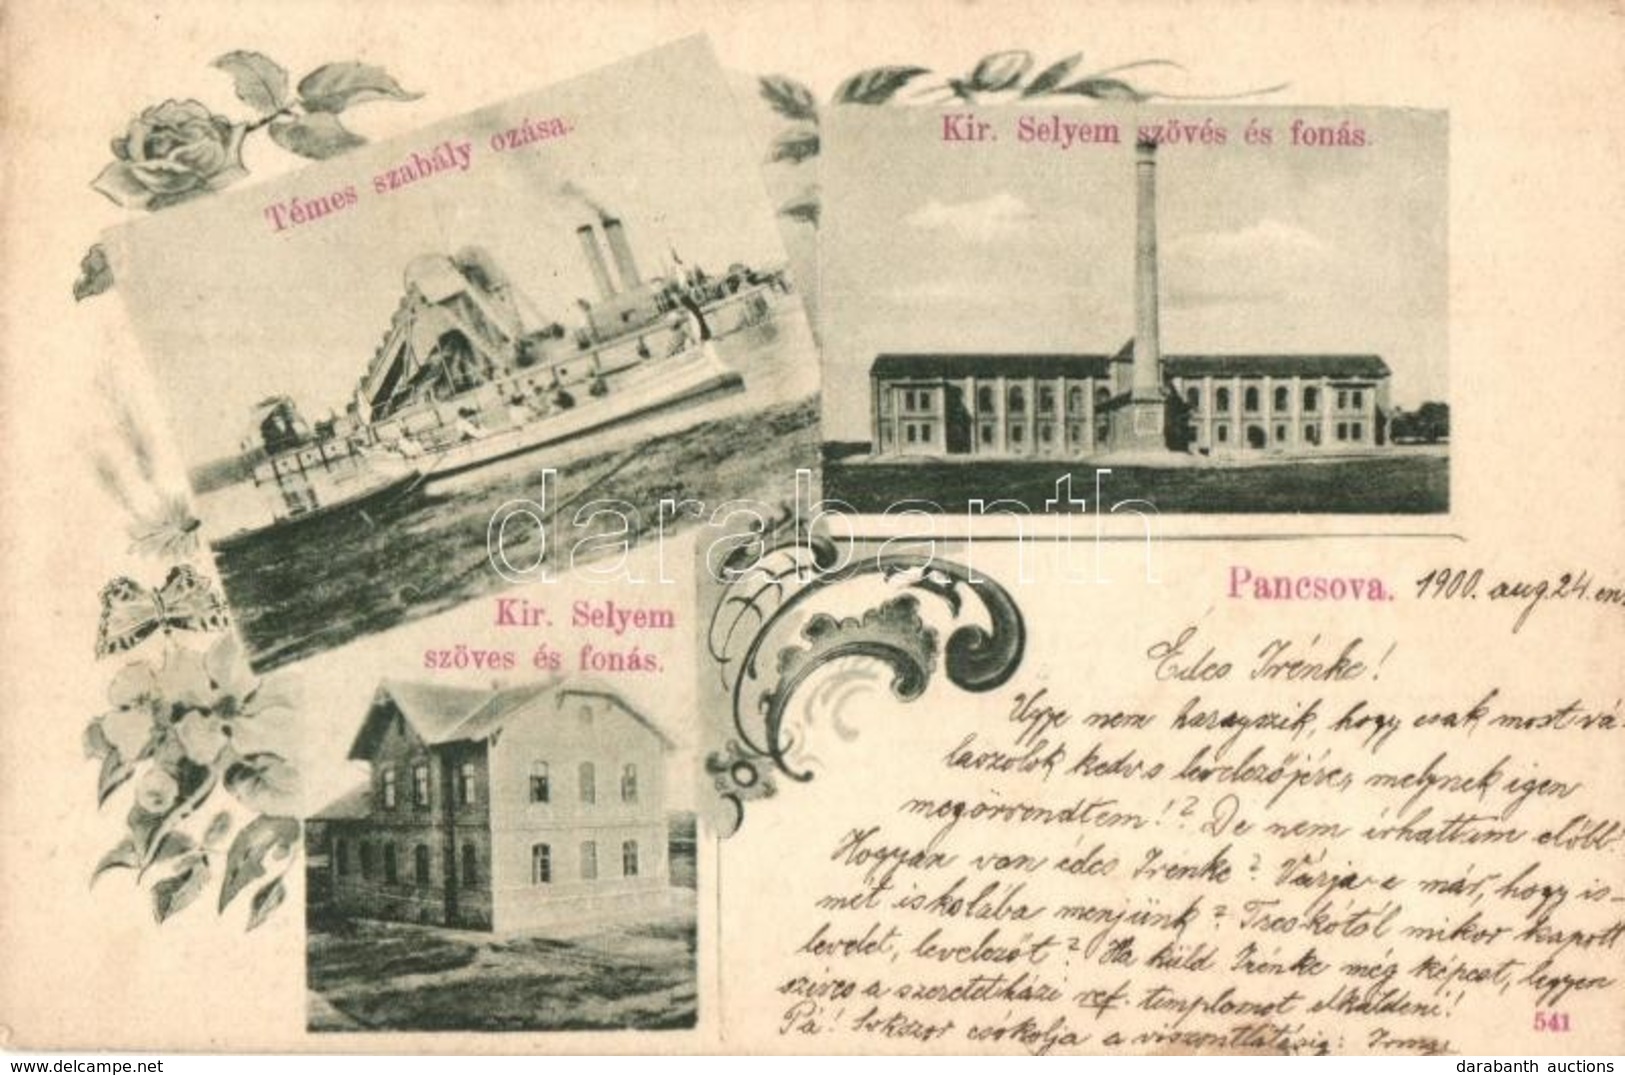 Témes szabály ozása.
Kir. Selyem szövés és fonás.
Kir. Selyem
szöves és fonás.
darabanth
Pancsova. 1900. aug. 24. en.
Édes Irénke!
Ugye nem haragszik, hogy csak most vá-
laszolok kedves levelezőjére, melynek igen
megörvendtem!? De nem írhattam előbb.
Hogyan van édes Irénke? Várja-e már, hogy is-
mét iskolába menjünk? Treskótól mikor kapott
levelet, levelezőt? Ha küld Irénke még képest, legyen
szives a szeretetházi ref. templomot elküldeni!
Pá! Sokszor csókolja a viszontlátásig:
541
darabanth auctions
darabanth auctions